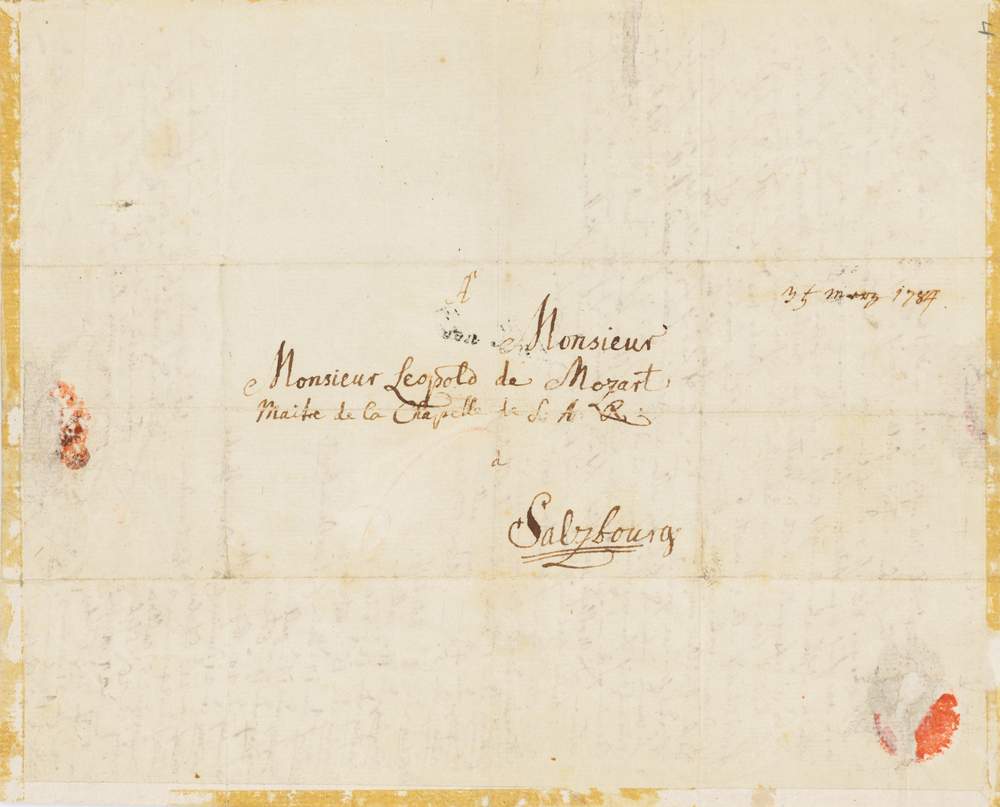 A
35 marz 1784
Monsieur
Monsieur Leopold de Mozart,
Maitre de la Chapelle de S. A. R.
à
Salzbourg
4